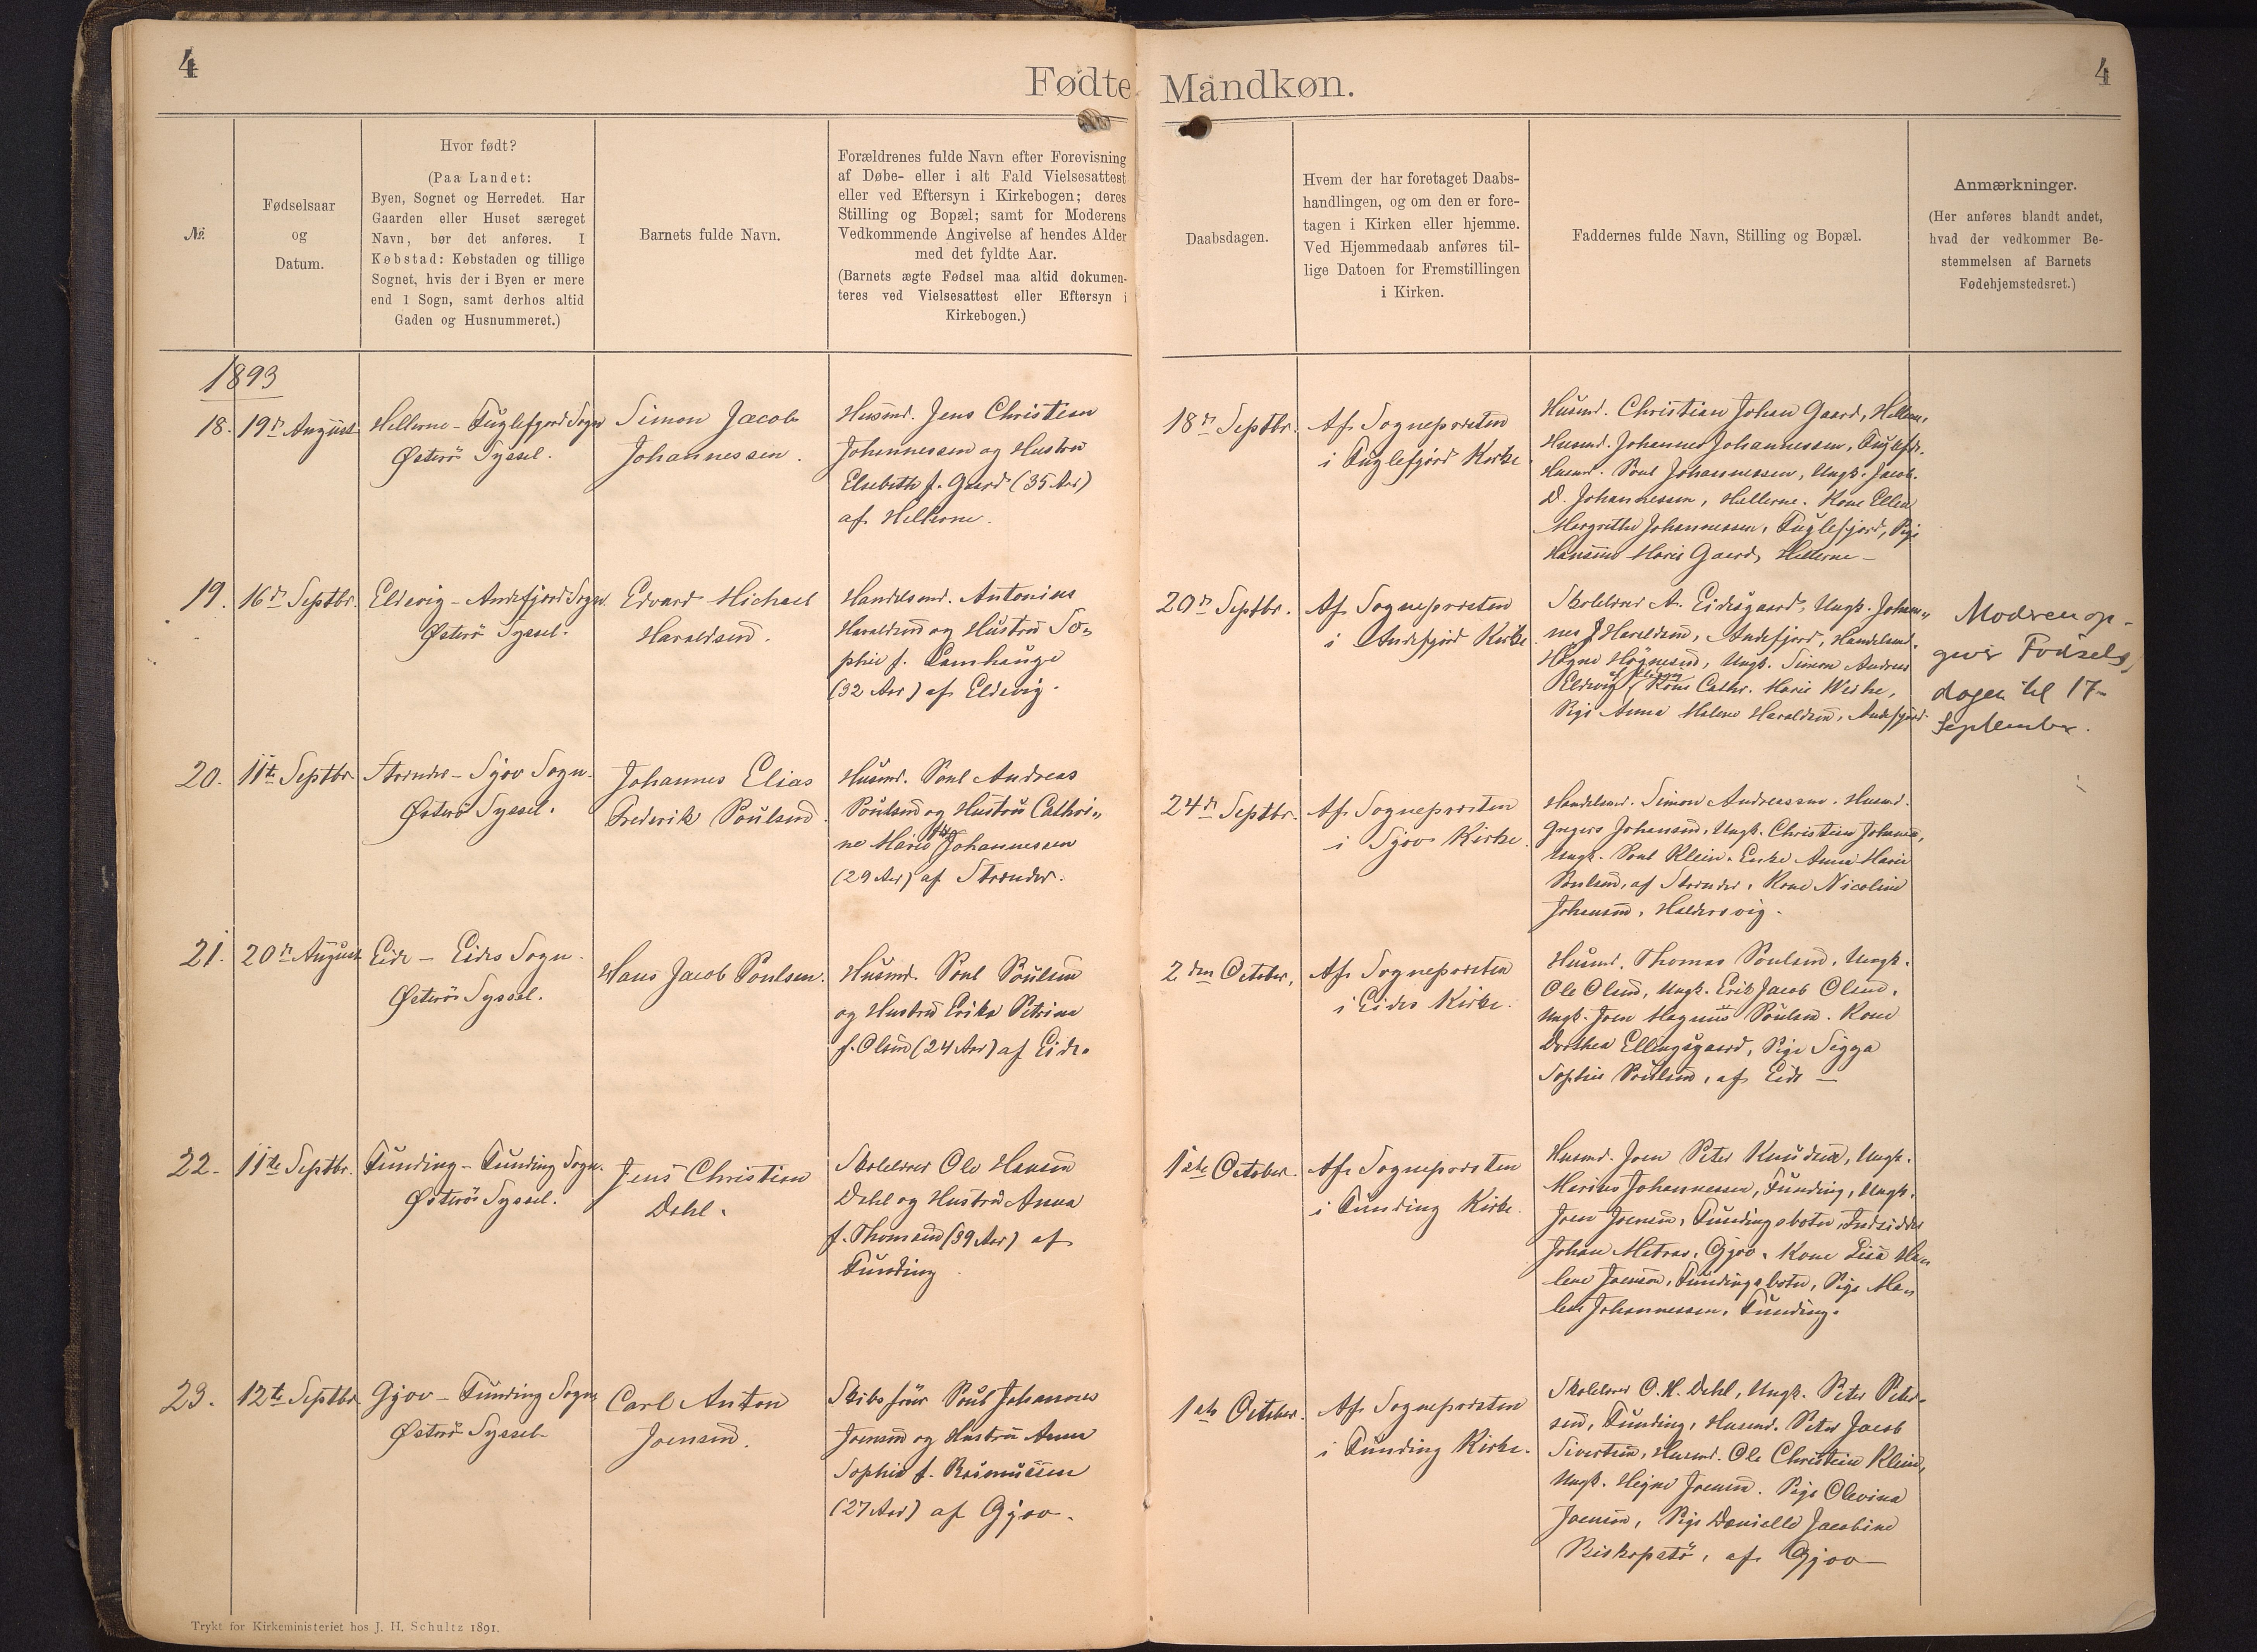 4
Fødte Mandkøn.
4
№
Fødselsaar
og
Datum.
Hvor født?
(Paa Landet:
Byen, Sognet og Herredet. Har
Gaarden eller Huset særeget
Navn, bør det anføres. I
Købstad: Købstaden og tillige
Sognet, hvis der i Byen er mere
end 1 Sogn, samt derhos altid
Gaden og Husnummeret.)
Barnets fulde Navn.
Forældrenes fulde Navn efter Forevisning
af Døbe- eller i alt Fald Vielsesattest
eller ved Eftersyn i Kirkebogen; deres
Stilling og Bopæl; samt for Moderens
Vedkommende Angivelse af hendes Alder
med det fyldte Aar.
(Barnets ægte Fødsel maa altid dokumen-
teres ved Vielsesattest eller Eftersyn i
Kirkebogen.)
Daabsdagen.
Hvem der har foretaget Daabs-
handlingen, og om den er fore-
tagen i Kirken eller hjemme.
Ved Hjemmedaab anføres til-
lige Datoen for Fremstillingen
i Kirken.
Faddernes fulde Navn, Stilling og Bopæl.
Anmærkninger.
(Her anføres blandt andet,
hvad der vedkommer Be-
stemmelsen af Barnets
Fødehjemstedsret.)
1893
18.
19de August
Hellerne - Fuglefjord Sogn
Østerö Syssel.
Simon Jacob
Johannessen.
Husmd. Jens Christian
Johannessen og Hustru
Elsebeth f. Gaard (35 Aar)
af Hellerne.
18de Septbr.
Af Sognepræsten
i Fuglefjord Kirke.
Husmd. Christian Johan Gaard, Hellern,
Husmd. Johannes Johannessen, Fuglefj.
Husmd. Poul Johannessen, Ungk. Jacob
D. Johannessen, Hellerne. Kone Ellen
Margrethe Johannessen, Fuglefjord, Pige
Hansine Marie Gaard, Hellerne -
19.
16de Septbr.
Eldevig - Andefjord Sogn.
Østerö Syssel.
Edvard Michael
Haraldsen.
Handelsmd. Antonius
Haraldsen og Hustru So-
phie f. Lamhauge
(32 Aar) af Eldevig.
20de Septbr.
Af Sognepræsten
i Andefjord Kirke.
Skolelærer A. Eidesgaard, Ungk. Johan-
nes J Haraldsen, Andefjord, Handelsmd.
Högne Högnesen, Ungk. Simon Andreas
Eldevig Kone Cathr. Marie Weihe,
Pige Anna Malene Haraldsen, Andefjord.
Modren op-
giver Fødsels,
dagen til 17-
September.
20.
11te Septbr.
Strænder - Sjov Sogn.
Østerö Syssel.
Johannes Elias
Frederik Poulsen.
Husmd. Poul Andreas
Poulsen og Hustru Cathri-
ne Marie Johannessen
(29 Aar) af Strænder.
24de Septbr.
Af Sognepræsten
i Sjov Kirke.
Handelsmd. Simon Andreassen. Husmd.
Gregers Johansen, Ungk. Christian Johansen,
Ungk. Poul Klein. Enke Anna Marie
Poulsen, af Strænder, Kone Nicoline
Johansen, Haldersvig.
21.
20de August
Eide - Eides Sogn.
Østerös Syssel.
Hans Jacob Poulsen.
Husmd. Poul Poulsen
og Hustru Erika Petrina
f. Olsen (24 Aar) af Eide.
2den October.
Af Sognepræsten
i Eides Kirke.
Husmd. Thomas Poulsen, Ungk.
Ole Olsen, Ungk. Erik Jacob Olsen.
Ungk. Joen Magnus Poulsen. Kone
Dorthea Ellingsgaard, Pige Sigga
Sophie Poulsen, af Eide -
22.
11te Septbr.
Funding - Funding Sogn.
Østerös Syssel.
Jens Christian
Dahl.
Skolelærer Ole Hansen
Dahl og Hustru Anna
f. Thomsen (39 Aar) af
Funding.
1ste October.
Af Sognepræsten
i Funding Kirke.
Husmd. Joen Peter Knudsen, Ungk.
Marius Johannessen, Funding, Ungk.
Joen Joensen, Fundingsbotn, Indsidder
Johan Matras, Gjov. Kone Lisa Ma-
lene Joensen, Fundingsbotn, Pige Ma-
lene Johannessen, Funding.
23.
12te Septbr.
Gjov - Funding Sogn,
Østerö Syssel
Carl Anton
Joensen.
Skibsfører Poul Johannes
Joensen og Hustru Anna
Sophie f. Rasmussen
(27 Aar) af Gjov.
1ste October.
Af Sognepræsten
i Funding Kirke.
Skolelærer O. H. Dahl, Ungk. Peter Peter-
sen, Funding, Husmd. Peter Jacob
Sivertsen, Husmd. Ole Christian Klein,
Ungk. Hejne Joensen. Pige Olevina
Joensen, Pige Danielle Jacobine
Biskopstö, af Gjov -
Trykt for Kirkeministeriet hos J. H. Schultz 1891.